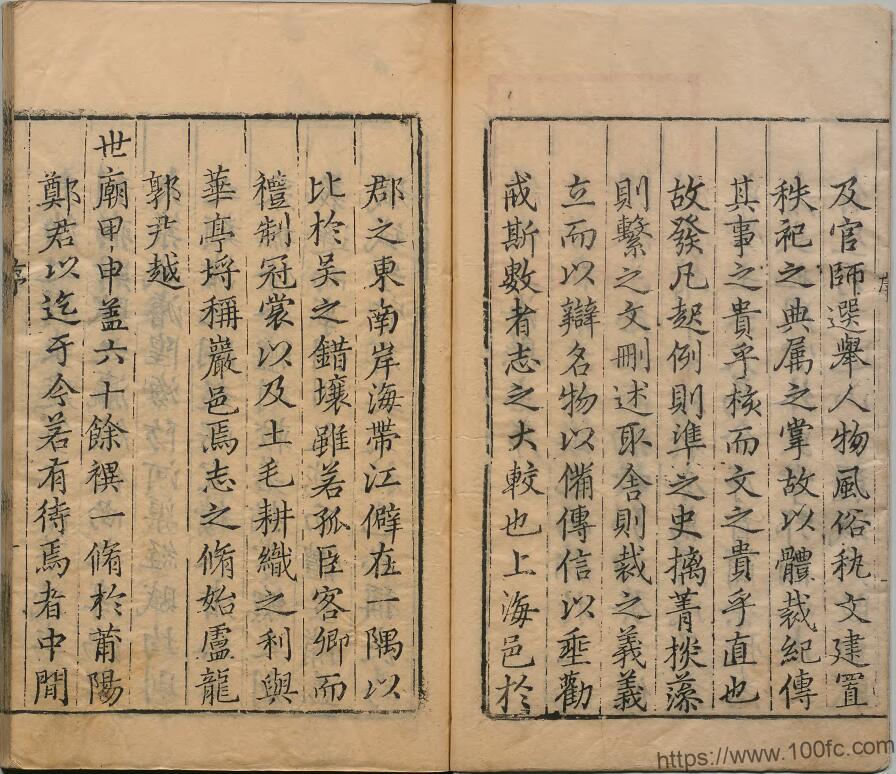 及官師選舉人物風俗秇文建置
秩祀之典属之掌故以體裁紀傳
其事之貴乎核而文之貴乎直也
故發凡起例則準之史摛菁掞藻
則繫之文刪述取舍則裁之義義
立而以辯名物以備傳信以垂勸
戒斯數者志之大較也上海邑於
郡之東南岸海帶江僻在一隅以
比於吴之錯壤雖若孤臣客卿而
禮制冠裳以及土毛耕織之利與
華亭埒稱巖邑焉志之脩始盧龍
郭尹越
世廟甲申盖六十餘禩一脩於莆陽
鄭君以迄于今若有待焉者中間
序
https://www.100fc.com